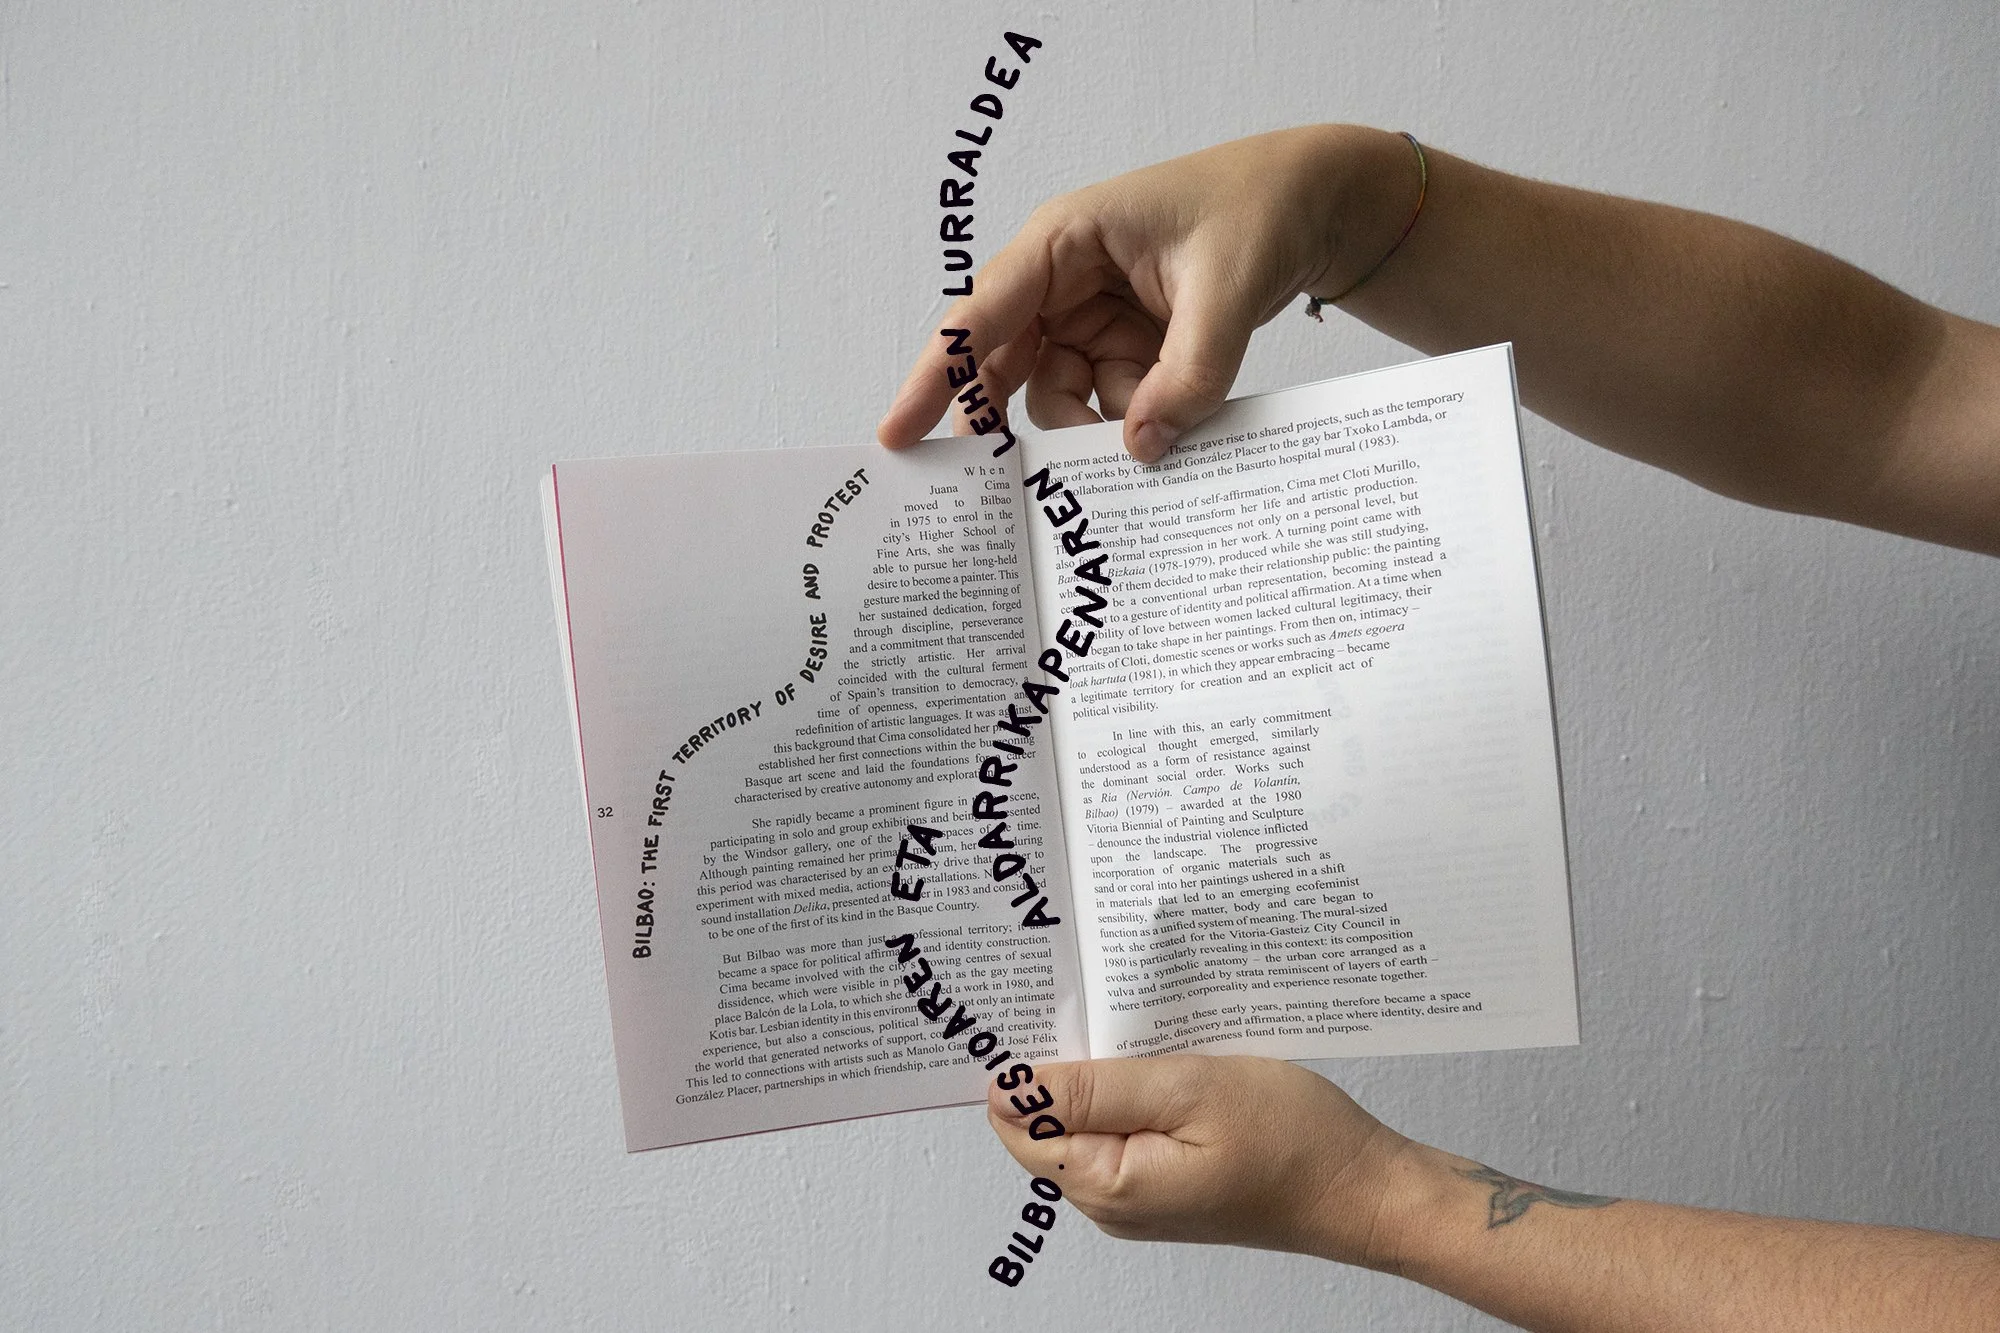 BILBO. DESIOAREN ETA ALDARRIKAPENAREN LEHEN LURRALDEA
BILBAO: THE FIRST TERRITORY OF DESIRE AND PROTEST
32
When
Juana Cima
moved to Bilbao
in 1975 to enrol in the
city's Higher School of
Fine Arts, she was finally
able to pursue her long-held
desire to become a painter. This
gesture marked the beginning of
her sustained dedication, forged
through discipline, perseverance
and a commitment that transcended
the strictly artistic. Her arrival
coincided with the cultural ferment
of Spain's transition to democracy, a
time of openness, experimentation and
redefinition of artistic languages. It was against
this background that Cima consolidated her
established her first connections within the burgeoning
Basque art scene and laid the foundations for a career
characterised by creative autonomy and exploration.
She rapidly became a prominent figure in scene,
participating in solo and group exhibitions and being
by the Windsor gallery, one of the spaces of time.
Although painting remained her primary medium, her during
this period was characterised by an exploratory drive that her to
experiment with mixed media, actions and installations. her
sound installation Delika, presented at in 1983 and considered
to be one of the first of its kind in the Basque Country.
But Bilbao was more than just a professional territory; it also
became a space for political affirmation and identity construction.
Cima became involved with the city's growing centres of sexual
dissidence, which were visible in such as the gay meeting
place Balcón de la Lola, to which she dedicated a work in 1980, and
Kotis bar. Lesbian identity in this environment not only an intimate
experience, but also a conscious, political stance, a way of being in
the world that generated networks of support, and creativity.
This led to connections with artists such as Manolo Gandía and José Félix
González Placer, partnerships in which friendship, care and resistance against
the norm acted together. These gave rise to shared projects, such as the temporary
loan of works by Cima and González Placer to the gay bar Txoko Lambda, or
her collaboration with Gandía on the Basurto hospital mural (1983).
During this period of self-affirmation, Cima met Cloti Murillo,
an encounter that would transform her life and artistic production.
The relationship had consequences not only on a personal level, but
also found formal expression in her work. A turning point came with
Bizkaia (1978-1979), produced while she was still studying,
when both of them decided to make their relationship public: the painting
be a conventional urban representation, becoming instead a
to a gesture of identity and political affirmation. At a time when
of love between women lacked cultural legitimacy, their
began to take shape in her paintings. From then on, intimacy –
portraits of Cloti, domestic scenes or works such as Amets egoera
loak hartuta (1981), in which they appear embracing – became
a legitimate territory for creation and an explicit act of
political visibility.
In line with this, an early commitment
to ecological thought emerged, similarly
understood as a form of resistance against
the dominant social order. Works such
as Ria (Nervión. Campo de Volantín,
Bilbao) (1979) – awarded at the 1980
Vitoria Biennial of Painting and Sculpture
– denounce the industrial violence inflicted
upon the landscape. The progressive
incorporation of organic materials such as
sand or coral into her paintings ushered in a shift
in materials that led to an emerging ecofeminist
sensibility, where matter, body and care began to
function as a unified system of meaning. The mural-sized
work she created for the Vitoria-Gasteiz City Council in
1980 is particularly revealing in this context: its composition
evokes a symbolic anatomy – the urban core arranged as a
vulva and surrounded by strata reminiscent of layers of earth –
where territory, corporeality and experience resonate together.
During these early years, painting therefore became a space
of struggle, discovery and affirmation, a place where identity, desire and
environmental awareness found form and purpose.